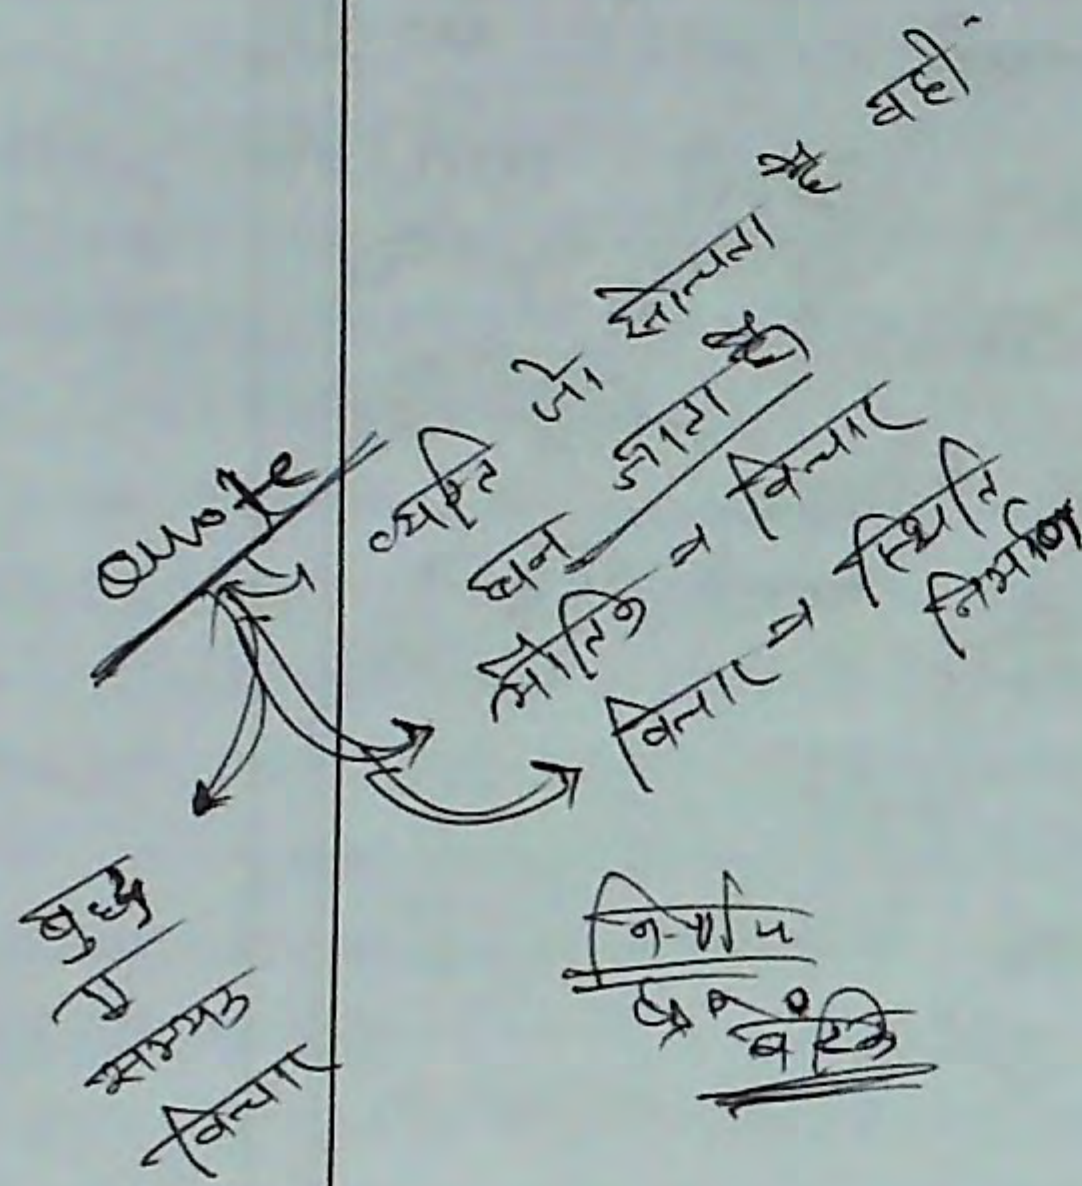 Quote
व्यक्ति जो सोचता है वही
बन जाता है
भौतिक व विचार
विचार व स्थिति
निर्माण
बुद्ध
सम्यक
विचार
निर्णय